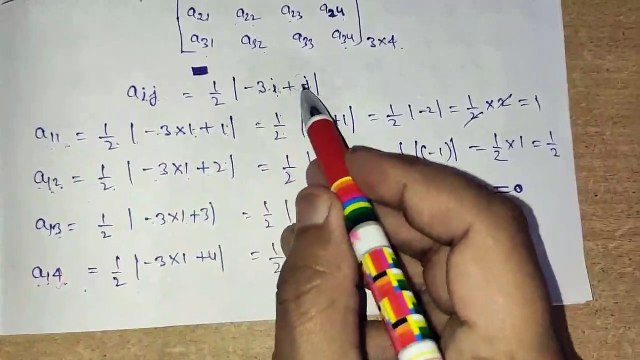 a21 a22 a23 a24
a31 a32 a33 a34 3×4
aij = 1/2 |-3i + j|
a11 = 1/2 |-3×1+1| = 1/2 | +1| = 1/2 |-2| = 1/2 × 2 = 1
a12 = 1/2 |-3×1+2| = 1/2 | |(-1)| = 1/2 × 1 = 1/2
a13 = 1/2 |-3×1+3| = 1/2 | = 0
a14 = 1/2 |-3×1+4| = 1/2